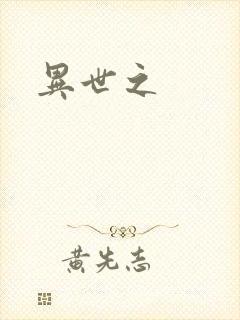 異世之
黄先志